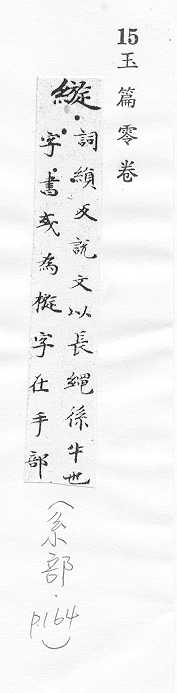 15玉篇零卷
縼
詞反說文以長繩係牛也
字書或為字在手部
(糸部.p.164)